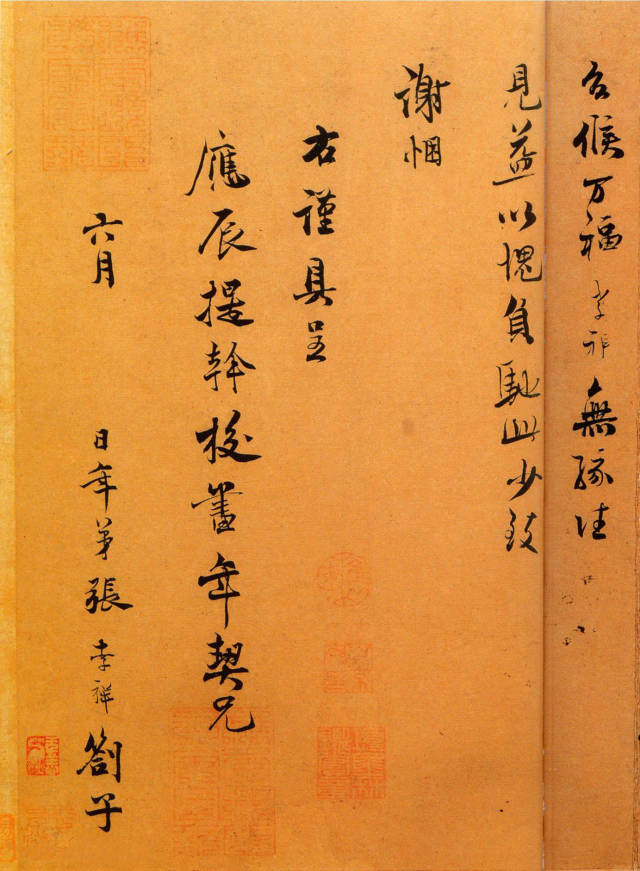 台候万福孝祥無緣往
見益以愧負馳此少致
謝悃
右謹具呈
應辰提幹校書年契兄
六月 日年弟張孝祥劄子